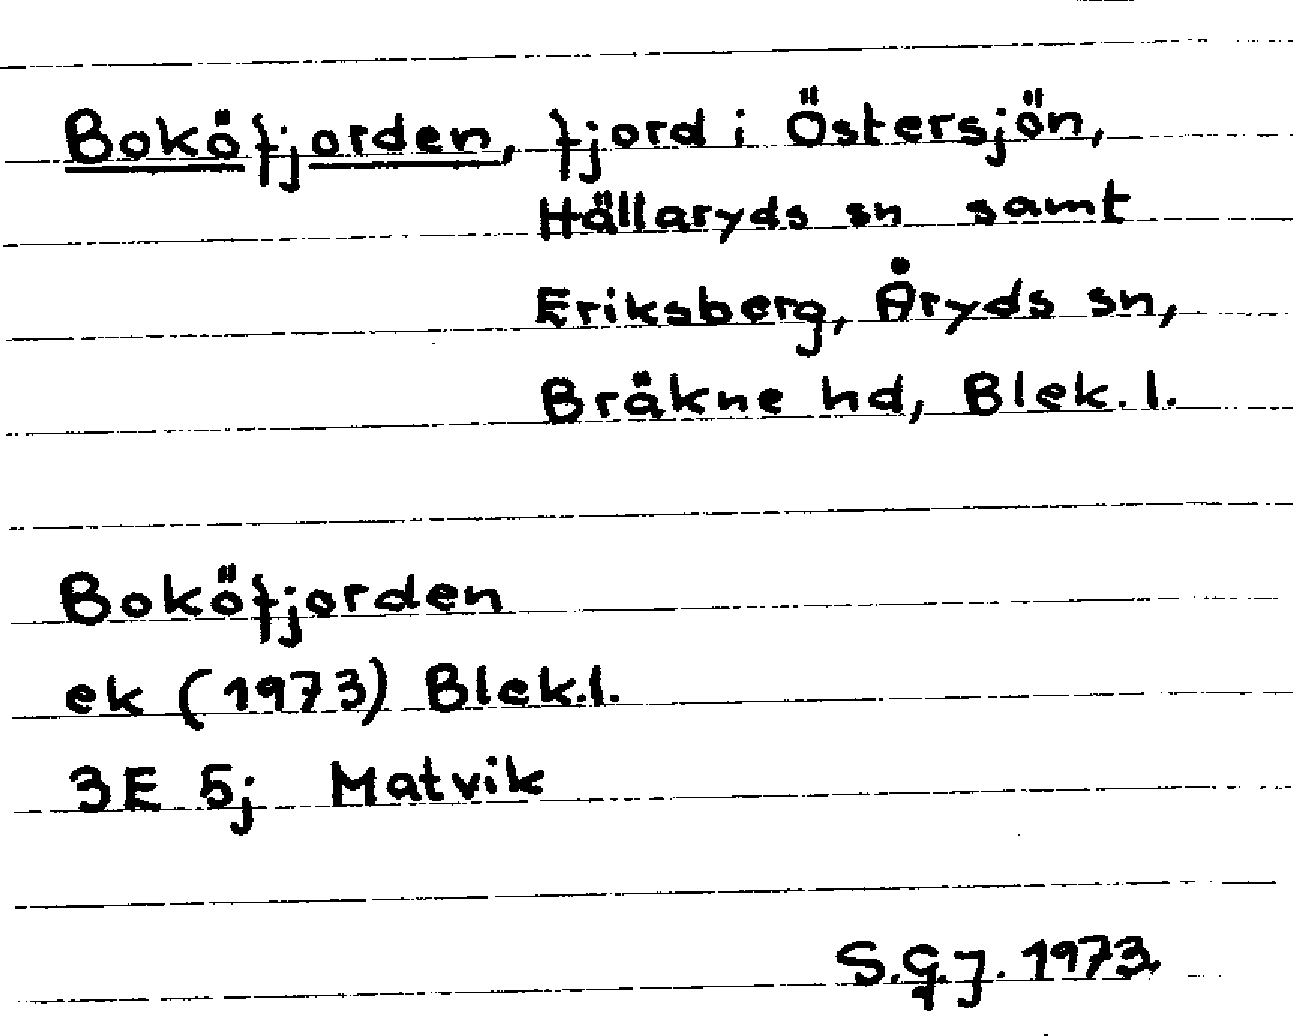 Boköfjorden, fjord i Östersjön,
Hällaryds sn samt
Eriksberg, Åryds sn,
Bräkne hd, Blek. l.
Boköfjorden
ek (1973) Blek.l.
3E 5j Matvik
S.G.J. 1973